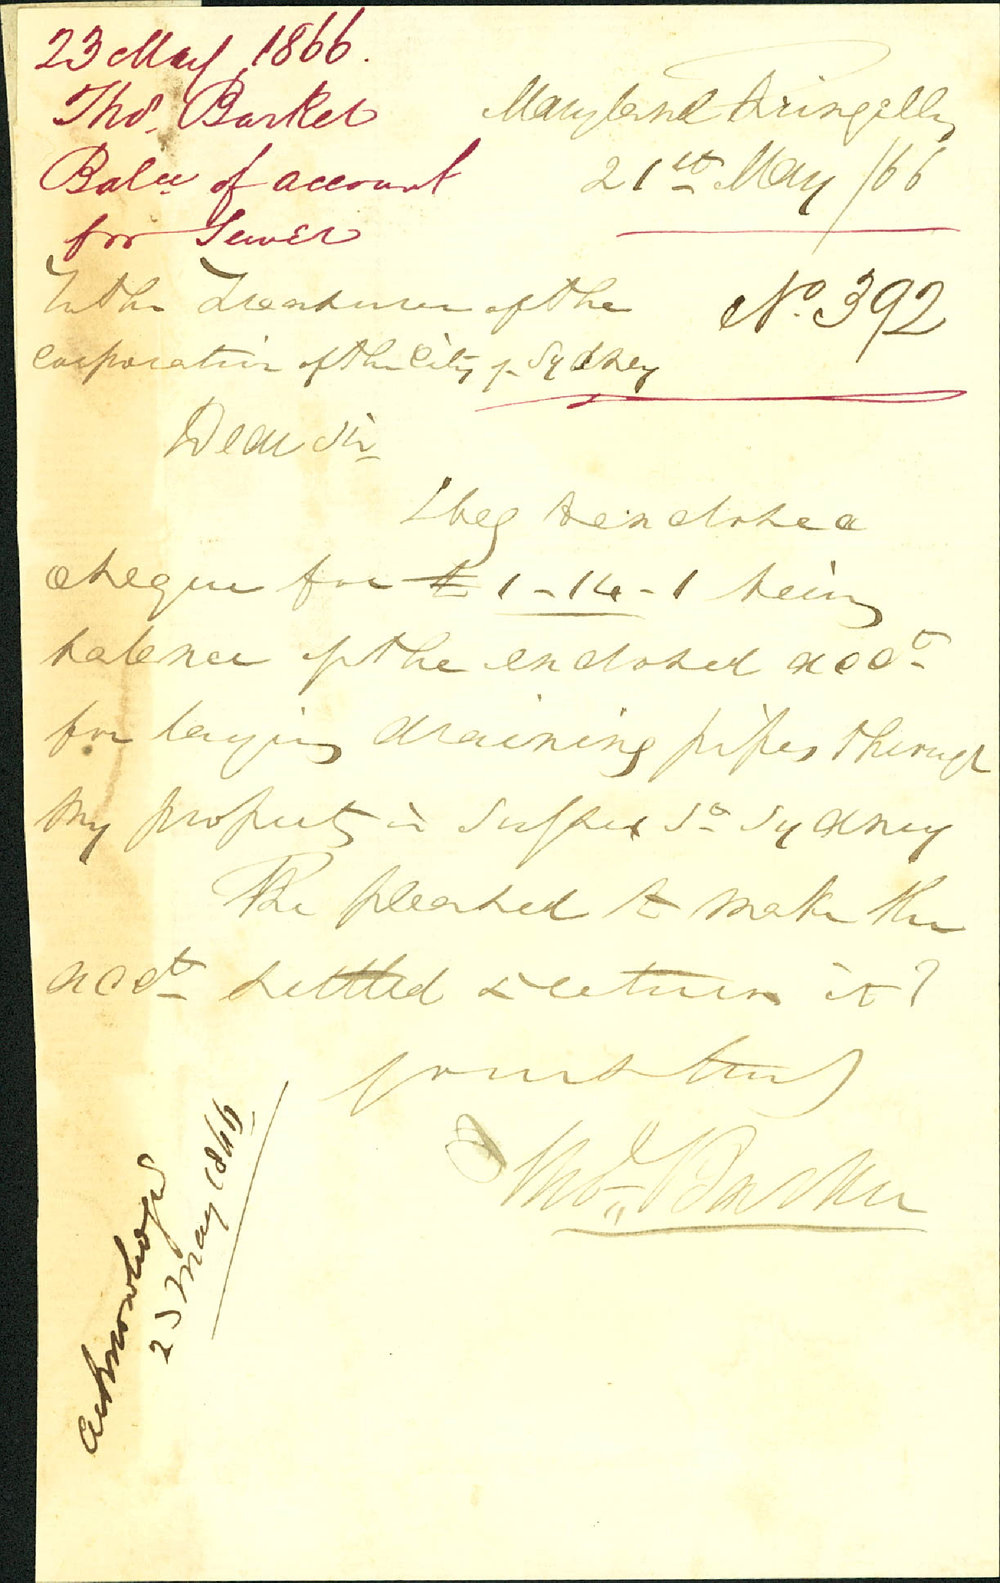 23 May 1866.
Thos. Barker
Balce of account
for Sewer
Maryland Bringelly
21st May /66
No. 392
To the Treasurer of the
Corporation of the City of Sydney
Dear Sir
I beg to enclose a
cheque for £1-14-1 being
balance of the enclosed acct
for laying draining pipes through
my property in Sussex St Sydney
Be pleased to make the
acct settled & return it?
yours truly
Thos. Barker
Acknowledged
23 May 1866